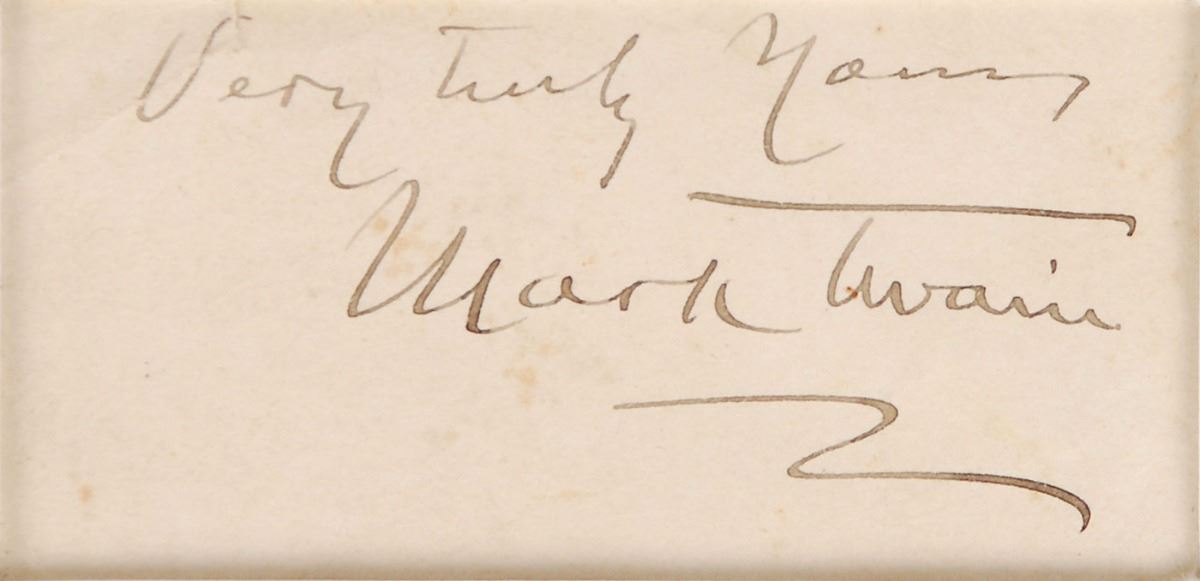 Very truly Yours
Mark Twain